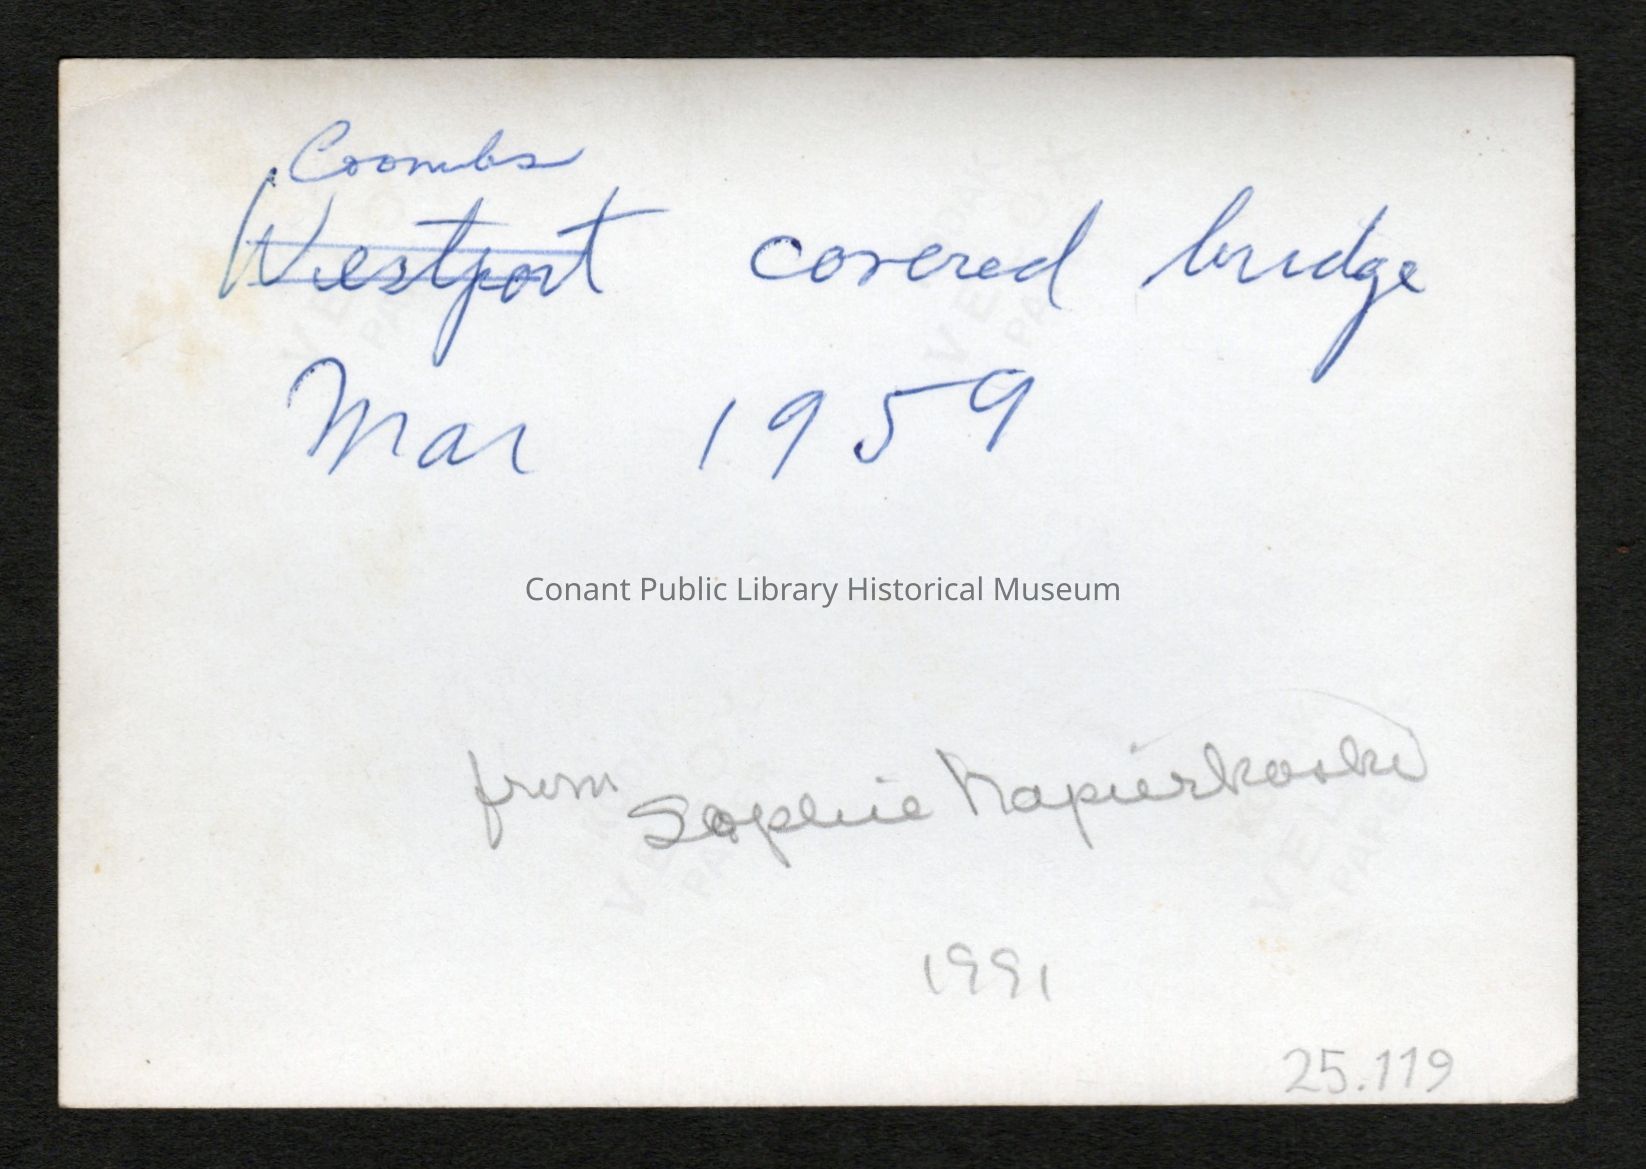 Coombs
Westport covered bridge
Mar 1959
Conant Public Library Historical Museum
from Sophie Napierkoski
1991
25.119